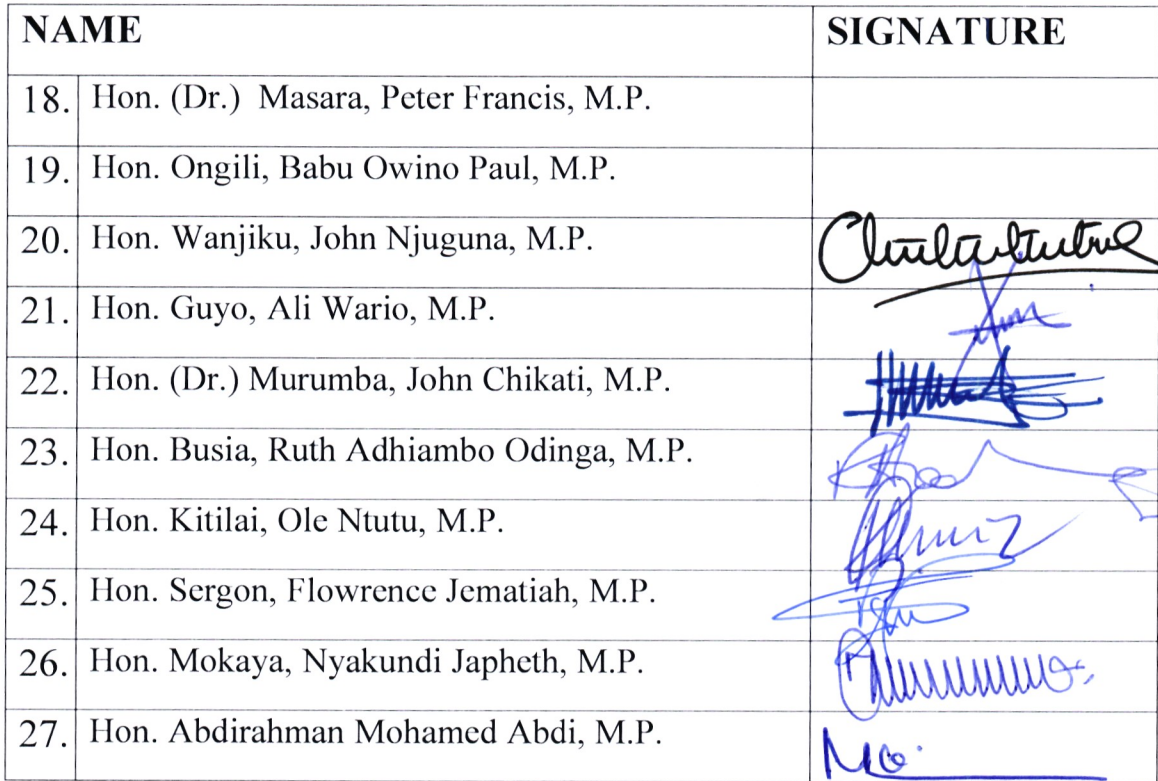 NAME SIGNATURE
18. Hon. (Dr.) Masara, Peter Francis, M.P.
19. Hon. Ongili, Babu Owino Paul, M.P.
20. Hon. Wanjiku, John Njuguna, M.P.
21. Hon. Guyo, Ali Wario, M.P.
22. Hon. (Dr.) Murumba, John Chikati, M.P.
23. Hon. Busia, Ruth Adhiambo Odinga, M.P.
24. Hon. Kitilai, Ole Ntutu, M.P.
25. Hon. Sergon, Flowrence Jematiah, M.P.
26. Hon. Mokaya, Nyakundi Japheth, M.P.
27. Hon. Abdirahman Mohamed Abdi, M.P.